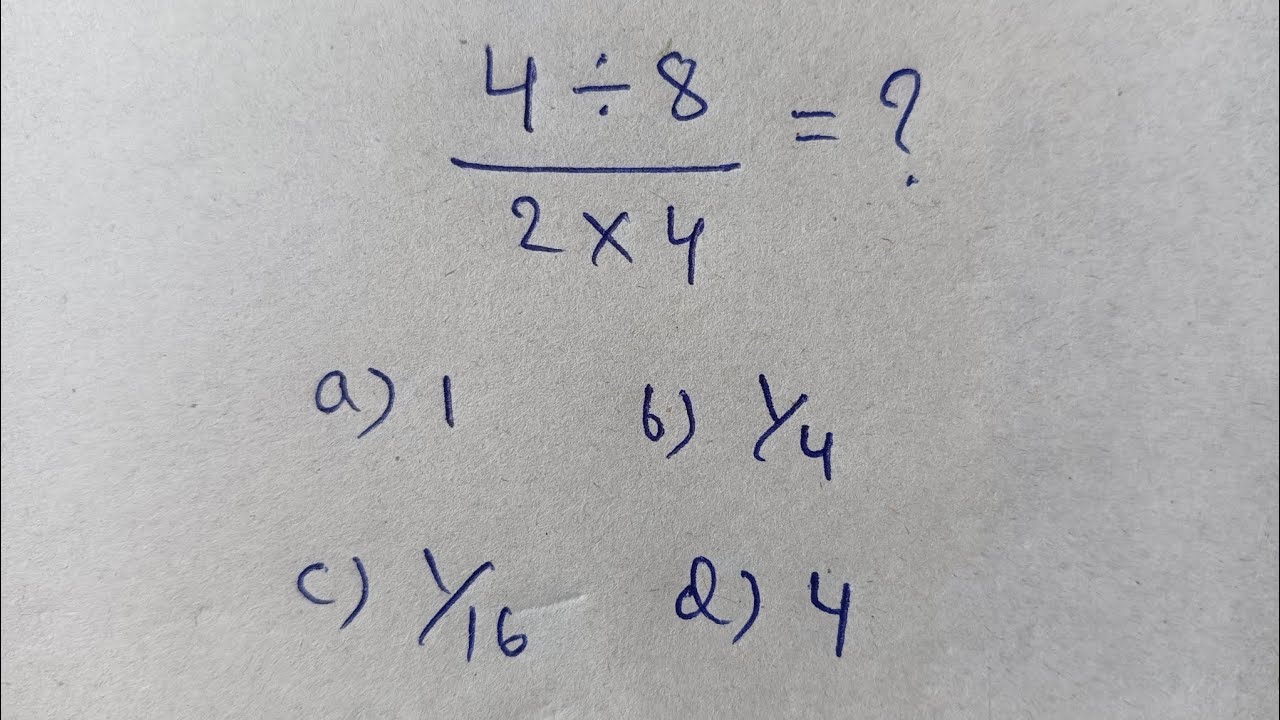 4 ÷ 8
2 × 4
= ?
a) 1 b) 1/4
c) 1/16 d) 4